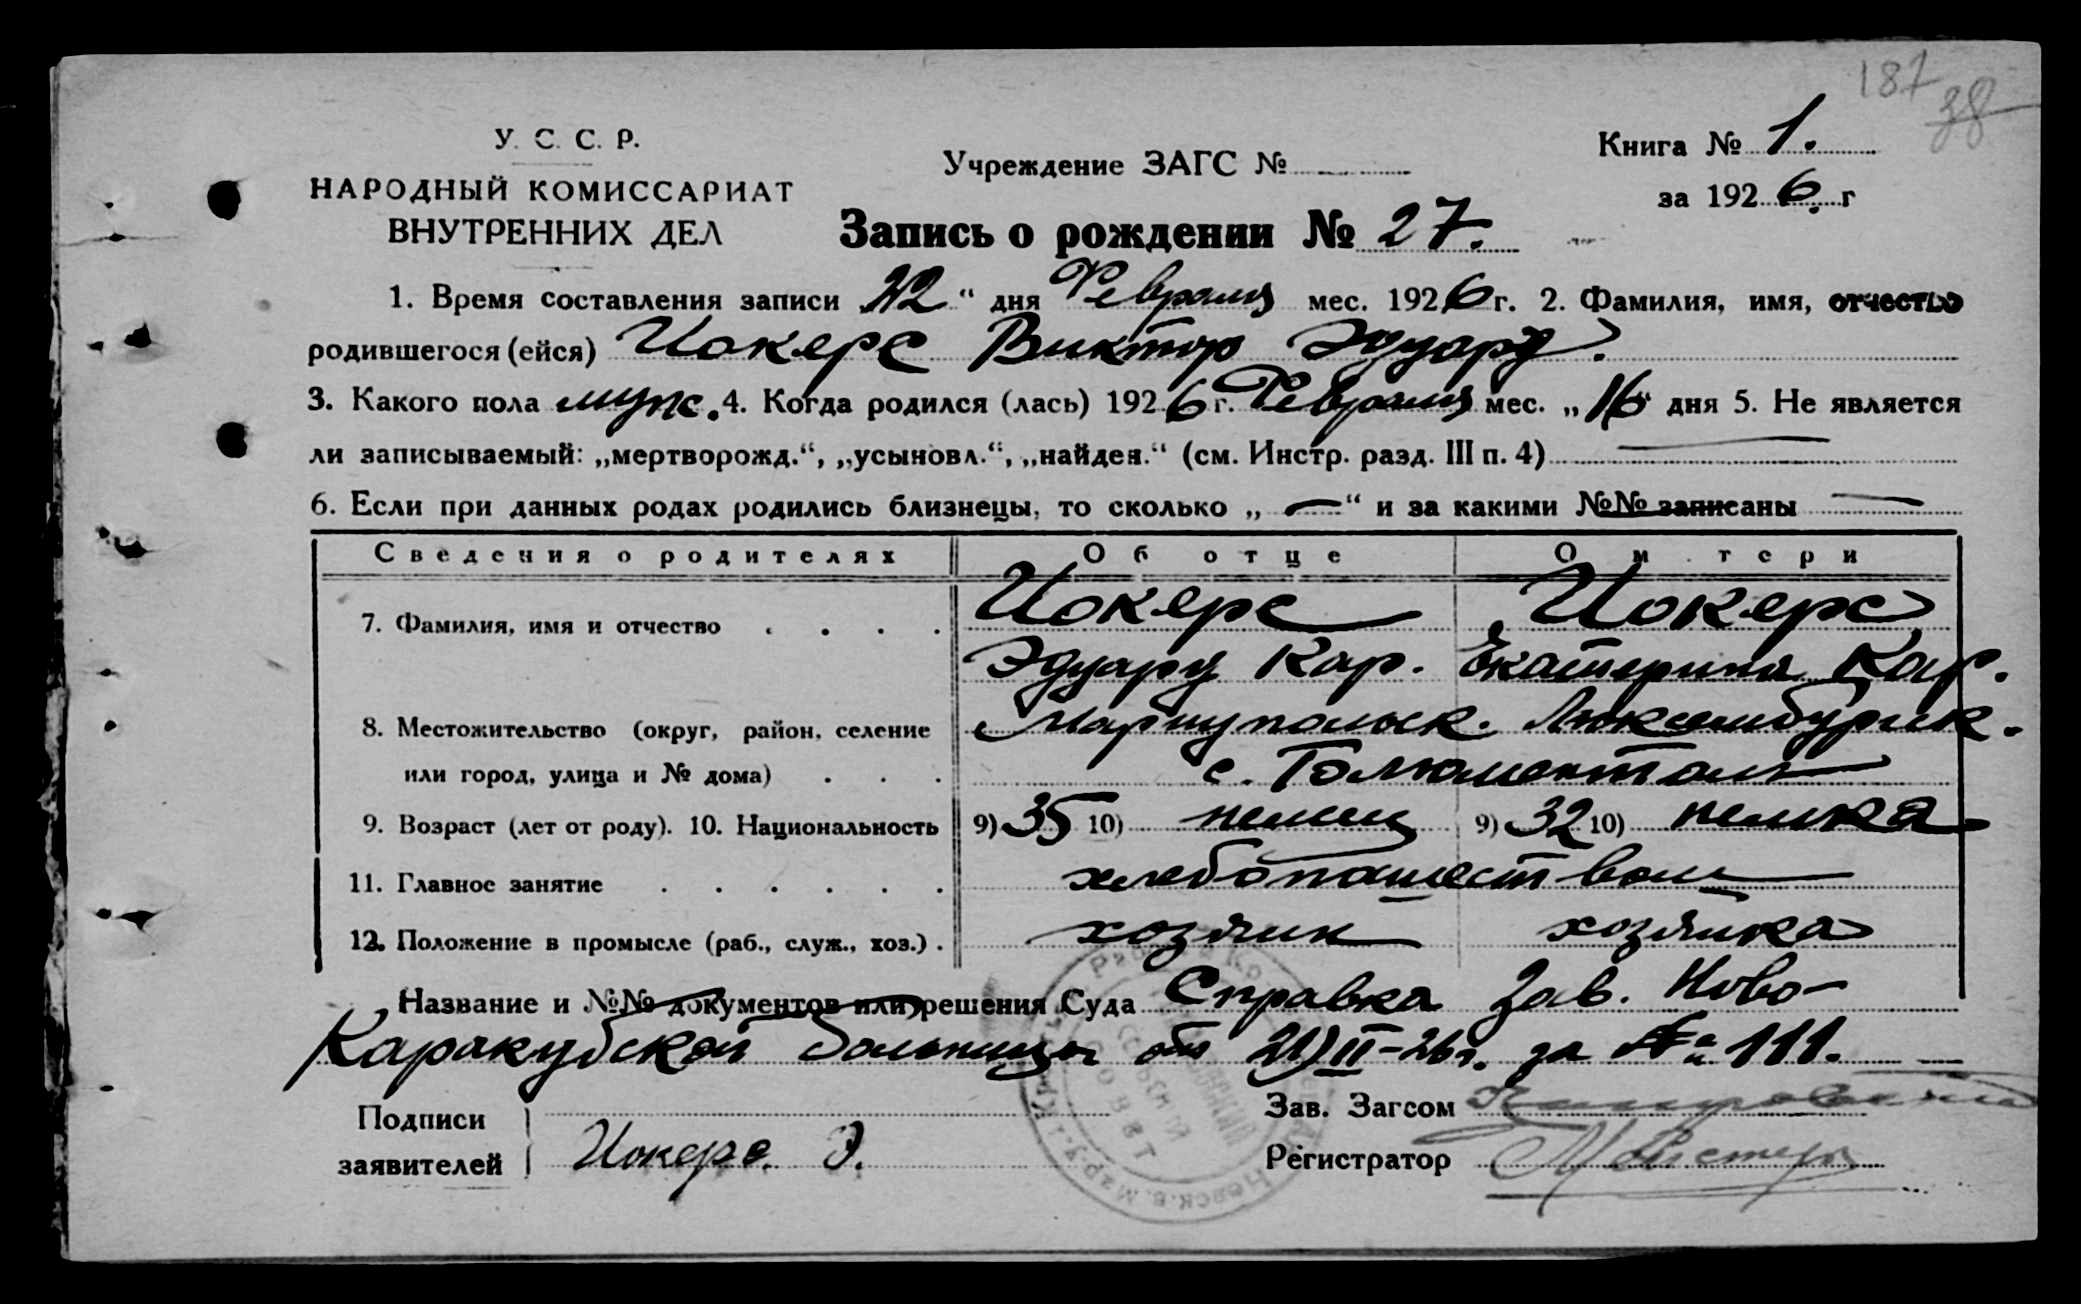 187
38
У. С. С. Р.
НАРОДНЫЙ КОМИССАРИАТ
ВНУТРЕННИХ ДЕЛ
Учреждение ЗАГС №
Книга № 1.
за 1926 г
Запись о рождении № 27.
1. Время составления записи 22 “ дня Февраля мес. 1926 г. 2. Фамилия, имя, отчество
родившегося (ейся) Иокерс Виктор Эдуард.
3. Какого пола мужс. 4. Когда родился (лась) 1926 г. Февраля мес. „16“ дня 5. Не является
ли записываемый: „мертворожд.“, „усыновл.“, „найден.“ (см. Инстр. разд. III п. 4) —
6. Если при данных родах родились близнецы, то сколько „ — “ и за какими №№ записаны —
Сведения о родителях Об отце О м тери
7. Фамилия, имя и отчество Иокерс Иокерс
Эдуард Кар. Екатерина Кар.
8. Местожительство (округ, район, селение Мариупольск. Люксембургск.
или город, улица и № дома) с.
9. Возраст (лет от роду). 10. Национальность 9) 35 10) немец 9) 32 10) немка
11. Главное занятие хлебопашеством
12. Положение в промысле (раб., служ., хоз.) . хозяин хозяйка
Название и №№ документов или решения Суда Справка Зав. Ново-
Каракубской больницы от 21/II-26 г. за № 111.
Подписи
заявителей Иокерс. Э.
Зав. Загсом
Регистратор